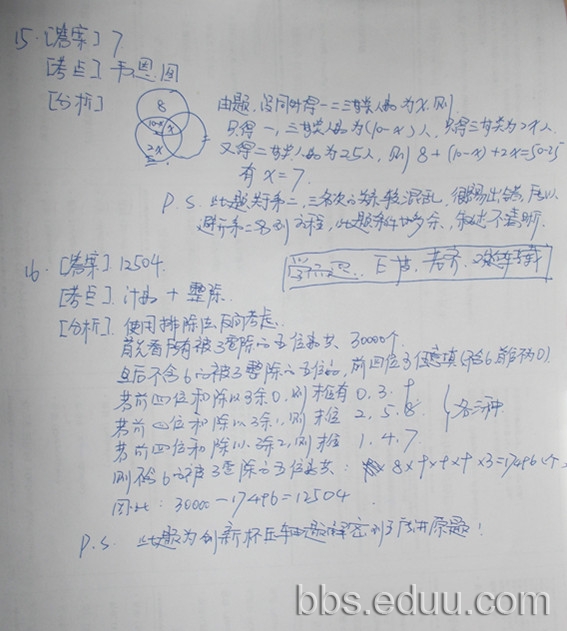 15. [答案] 7
[考点] 韦恩图
[分析]
8
10-x
x
2x
由题,设同时得一二三等奖人数为x,则
只得一,三等奖人数为(10-x)人,只得三等奖为2x人
又得二等奖人数为25人,则 8+(10-x)+2x=50-25
有 x=7.
P.S. 此题关于第二,三名次的关系较混乱,很容易出错,所以
避开第二名列方程,此题条件多余,叙述不清晰.
16. [答案] 12504.
[考点] 计数+整除.
[分析] 使用排除法,反向考虑.
首先看所有被3整除的五位数共 30000个
然后不含6的被3整除的五位数,前四位可任意填(不含6,首位不为0)
若前四位和除以3余0,则末位有 0.3.9
若前四位和除以3余1,则末位 2,5.8
若前四位和除以3余2,则末位 1.4.7
各三种
则不含6的被3整除的五位数共: 8×9×9×9×3=17496(个)
因此: 30000-17496=12504.
P.S. 此题为创新杯 原题!
bbs.eduu.com